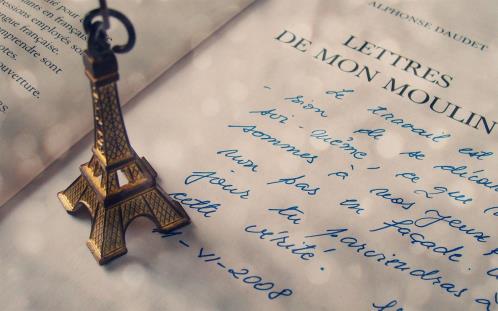 pressions employés so
ngue française.
mprendre sont
otes.
ouverture.
ALPHONSE DAUDET
LETTRES
DE MON MOULIN
- Le travail est
sion de se déco
soi-même, ce que
sommes à nos yeux
non pas en façade.
jour tu parviendras à
cette vérité.
-VI-2008